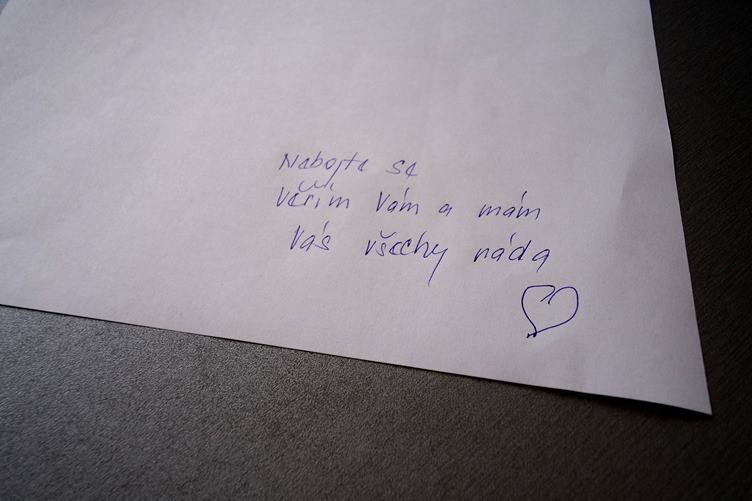 Nebojte se
Věřím Vám a mám
Vás všechy ráda